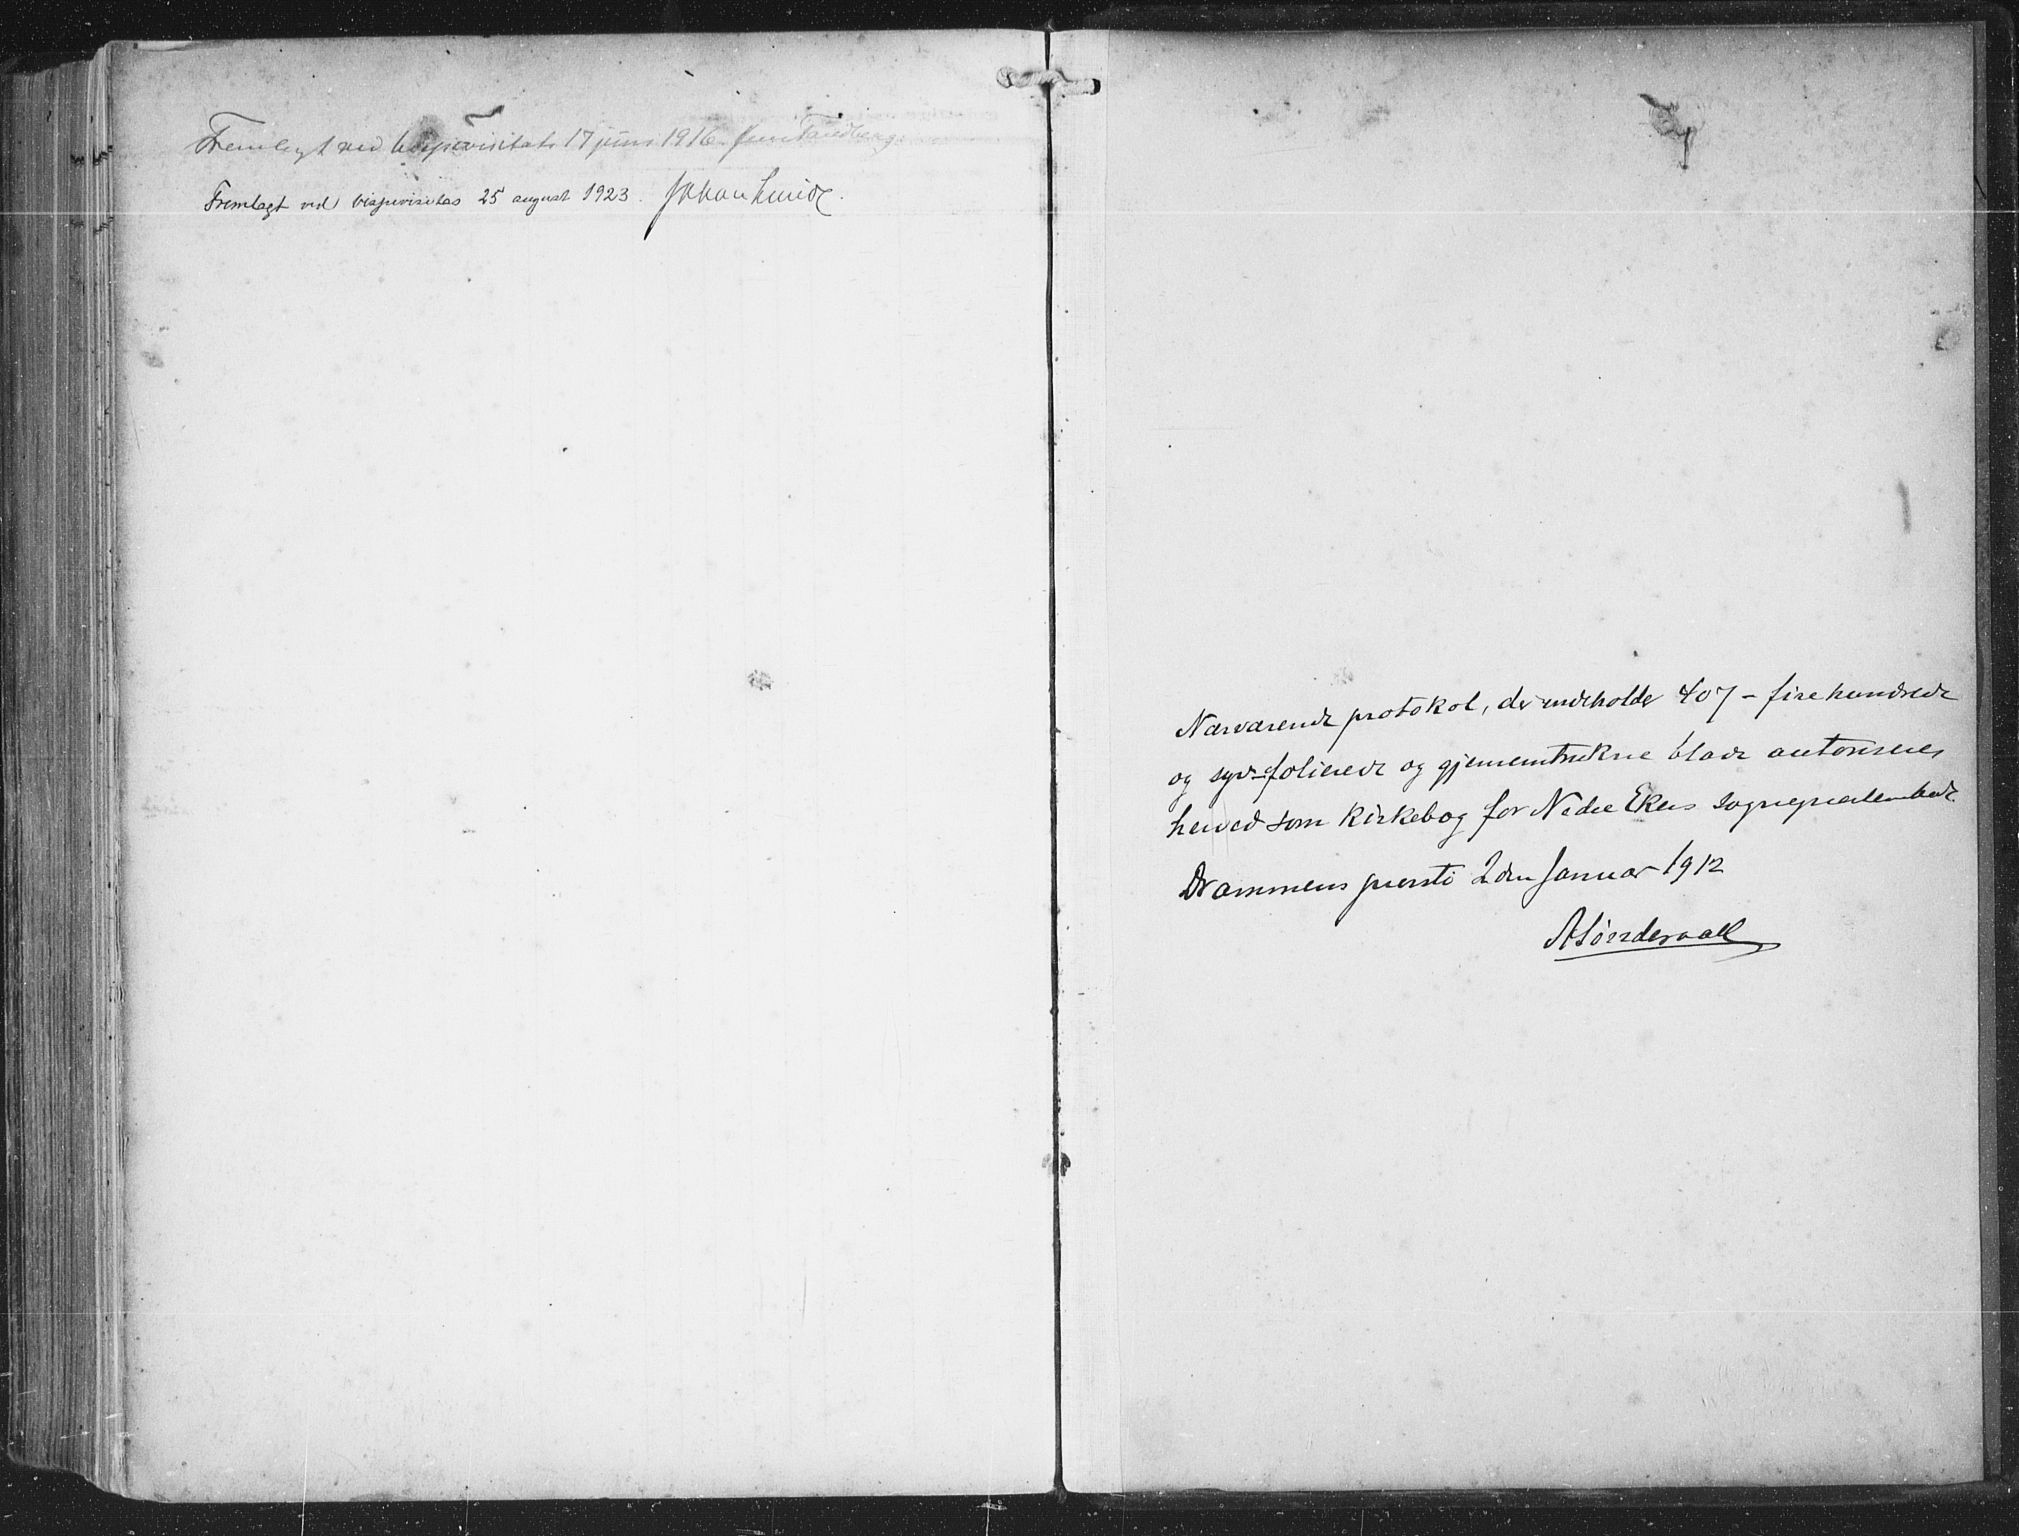 Fremlagt ved bispevisitats 17 juni 1916 Jens Tandberg.
Fremlagt ved bispevisitas 25 august 1923. Johan Lunde.
Nærværende protokol, der indeholder 407 - fire hundrede
og syv - folierede og gjennemtrukne blade autoriseres
herved som kirkebog for Nedre Ekers sogneprestembede
Drammens provsti 2den Januar 1912
A Sørdervall